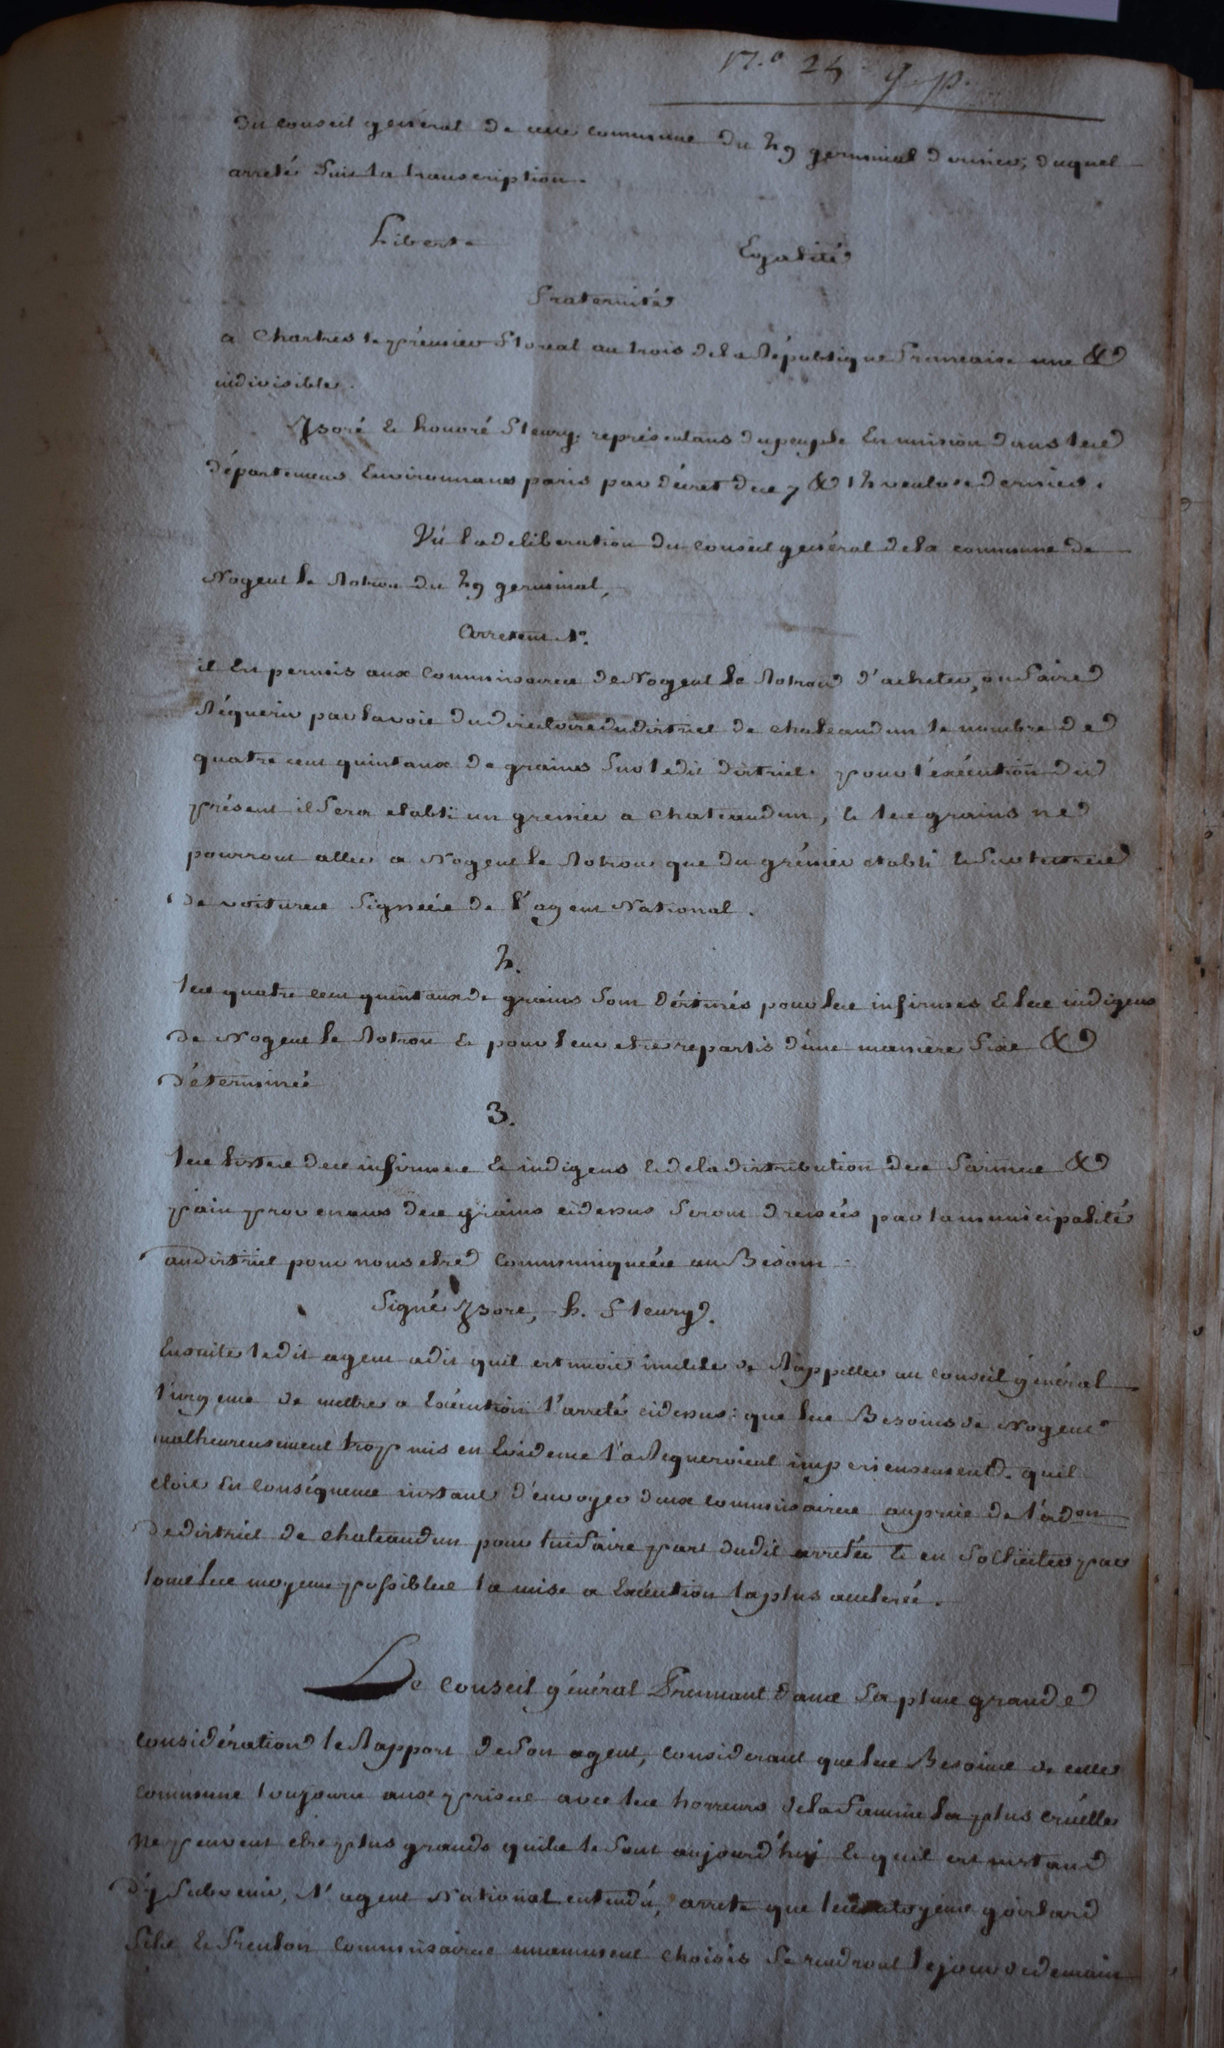 du conseil général de cette commune du 29 germinal dernier; duquel
arreté suit la transcription.
Liberté Egalité
fraternité
a Chartres le prémier floreal an trois de la République francaise une &
indivisible.
Isoré & honoré fleury, représentans du peuple En mission dans les
départemens Environnans paris par décret des 7 & 12 ventose dernier.
Vû la deliberation du conseil général de la commune de
Nogent le Rotrou du 29 germinal,
Arretent 1º.
il Est permis aux Commissaires de Nogent le Rotrou d'acheter, ou faire
Réquerir par la voie du directoire du district de chateaudun le nombre de
quatre cent quintaux de grains sur ledit district. pour l'exécution du
présent il sera etabli un grenier a chateaudun, & les grains ne
pourront aller a Nogent le Rotrou que du grénier etabli & sur lettres
de voitures signées de l'agent National.
2.
les quatre cent quintaux de grains sont déstinés pour les infirmes & les indigens
de Nogent le Rotrou & pour leur etre repartis d'une manière fixe &
déterminée
3.
les listes des infirmes & indigens & de la distribution des farines &
pain provenans des grains cidessus seront dressées par la municipalité
au district pour nous etre communiquées au Besoin.
Signé Isore, h. fleury.
Ensuite ledit agent a dit quil est inutile de Rappeller au conseil général
l'urgence de mettre a Exécution l'arreté cidessus: que les Besoins de Nogent
malheureusement trop mis en Evidence l'a Requeroient imperieusement. quil
etoit En conséquence instant d'envoyer deux commissaires auprès de l'adon
de district de chateaudun pour lui faire part dudit arretée & en solliciter par
tous les moyens possibles la mise a Exécution la plus accelerée.
Le conseil général Prennant dans sa plus grande
considération le Rapport de son agent, considerant que les Besoins de cette
commune toujours aux prises avec les horreurs de la famine la plus cruelle
ne peuvent etre plus grands quils le sont aujourd'hui & quil est instant
d'y subvenir, l'agent National entendû, arrete que les citoyens
commissaires unanimement choisis se rendront le jour de demain